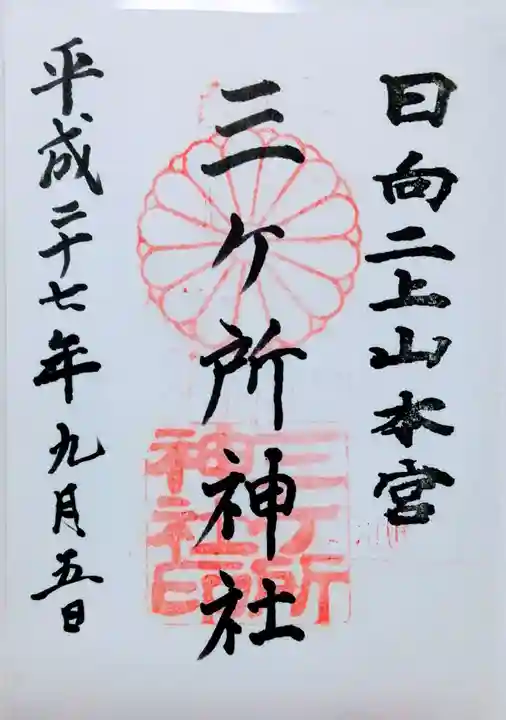 日向二上山本宮
三ヶ所神社
平成二十七年九月五日
三ヶ所
神社印